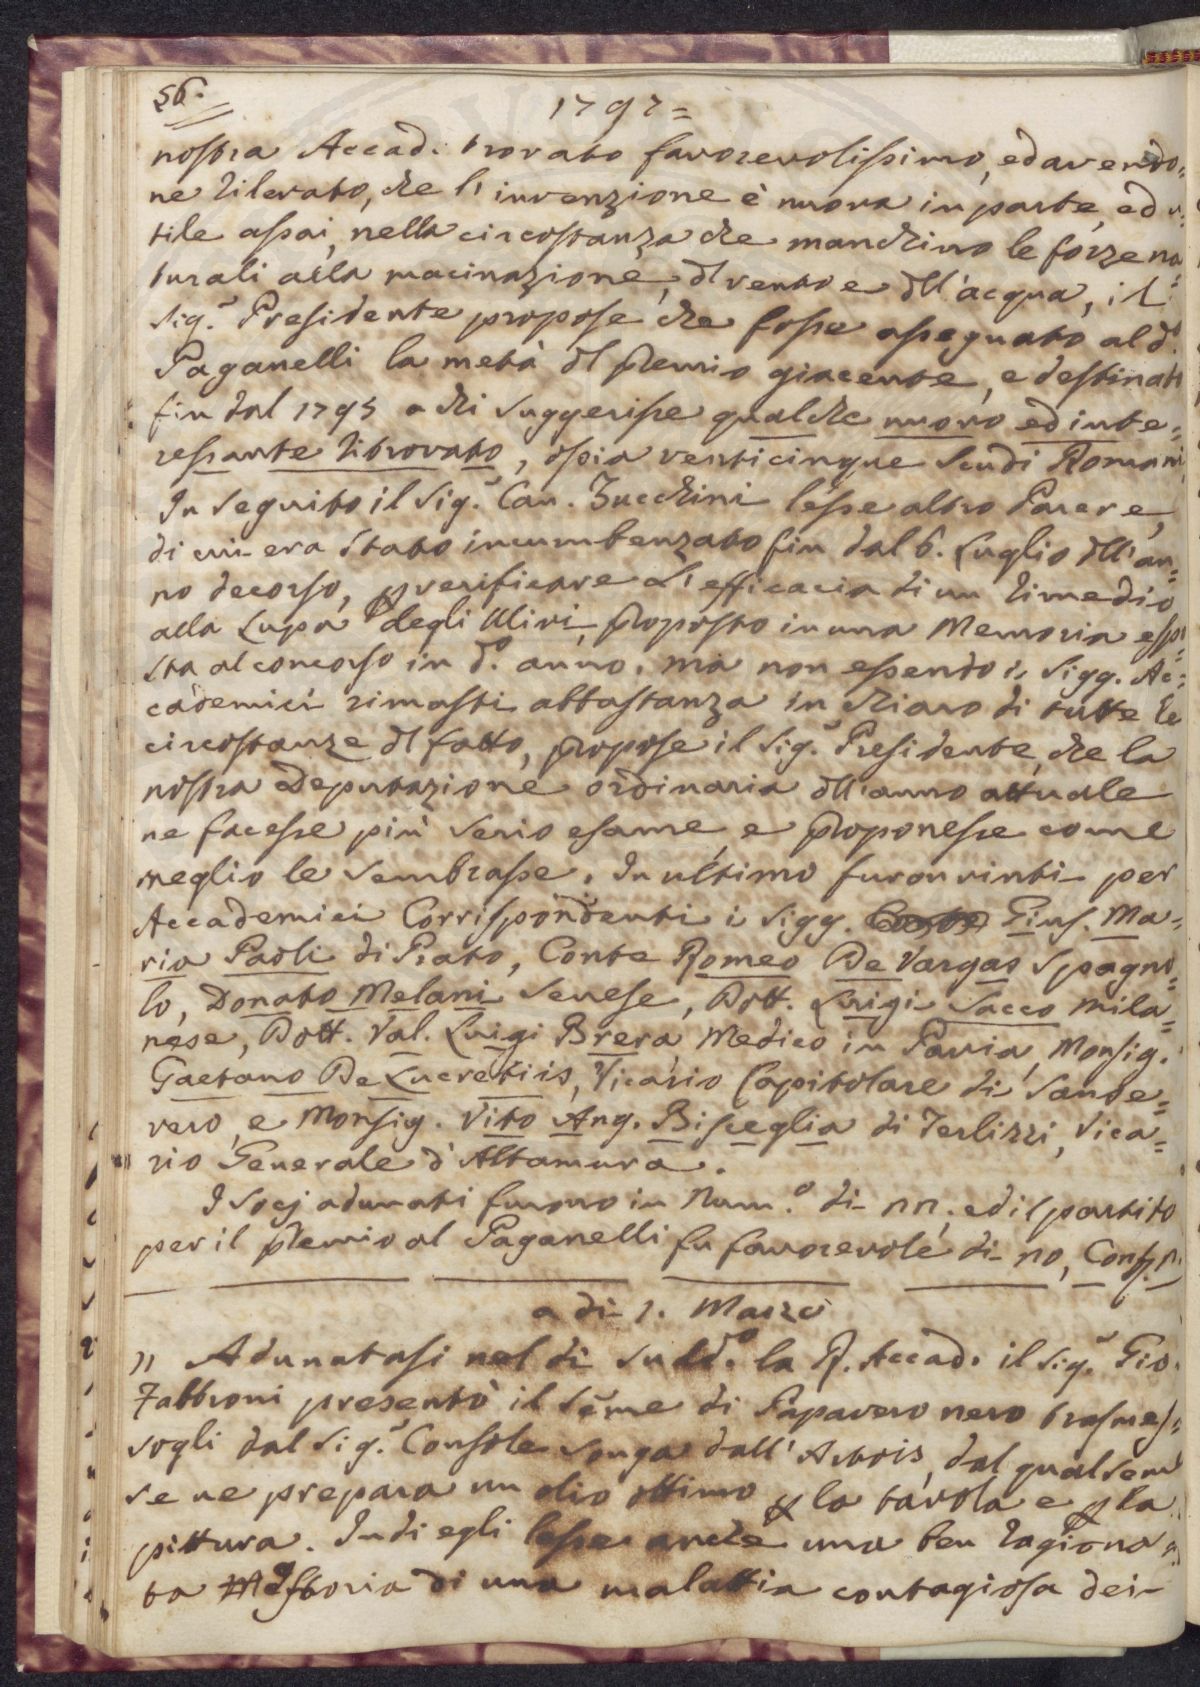 56.
1797=
nostra Accad. trovato favorevolissimo, ed avendo=
ne rilevato, che l'invenzione è nuova in parte, ed u=
tile assai, nella circostanza che manchino le forze na=
turali alla macinazione, del vento e dell'acqua, il
Sig.r Presidente propose che fosse assegnato al d.o
Paganelli la metà del premio giacente, e destinato
fin dal 1795 a chi suggerisse qualche nuovo ed inte=
ressante ritrovato, ossia venticinque Scudi Romani
In seguito il Sig.r Can. Zucchini lesse altro Parere,
di cui era stato incumbenzato fin dal 6. Luglio dell'an=
no decorso, per verificare l'efficacia di un rimedio
alla Lupa degli Ulivi, proposto in una Memoria espo=
sta al concorso in d.o anno. ma non essendo i Sigg. Ac=
cademici rimasti abbastanza in chiaro di tutte le
circostanze del fatto, propose il Sig.r Presidente, che la
nostra Deputazione ordinaria dell'anno attuale
ne facesse più serio esame, e proponesse come
meglio le sembrasse. In ultimo furon vinti per
Accademici Corrispondenti i Sigg. Gius. Ma=
ria Paoli di Prato, Conte Romeo De Vargas Spagno
lo, Donato Melani Senese, Dott. Luigi Sacco Mila=
nese, Dott. Val. Luigi Brera Medico in Pavia, Monsig.
Gaetano De Lucretiis, Vicario Capitolare di Sanse=
vero, e Monsig. Vito Ang. Bisceglia di Terlizzi, Vica=
rio Generale d'Altamura.
I Socj adunati furono in Num.o di 11. ed il partito
per il premio al Paganelli fu favorevole di 10,
a di 1. Marzo
" Adunatasi nel dì sudd.o la R. Accad. il Sig.r Gio.
Fabbroni presentò il seme di Papavero nero trasmes=
sogli dal Sig.r Console Songa dall'Artois, dal qual seme
se ne prepara un olio ottimo per la tavola e per la
pittura. Indi egli lesse anche una ben ragiona=
ta Istoria di una malattia contagiosa dei